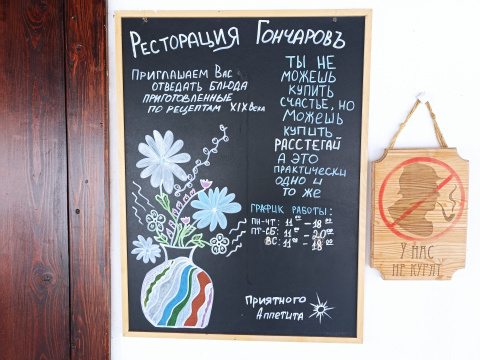 Ресторация Гончаровъ
Приглашаем Вас
отведать блюда
приготовленные
по рецептам XIX века
Ты не
можешь
купить
счастье, но
можешь
купить
расстегай
а это
практически
одно и
то же
График работы:
Пн-Чт: 11⁰⁰ - 18⁰⁰
Пт-Сб: 11⁰⁰ - 20⁰⁰
Вс: 11⁰⁰ - 18⁰⁰
Приятного
Аппетита
У НАС
НЕ КУРЯТ